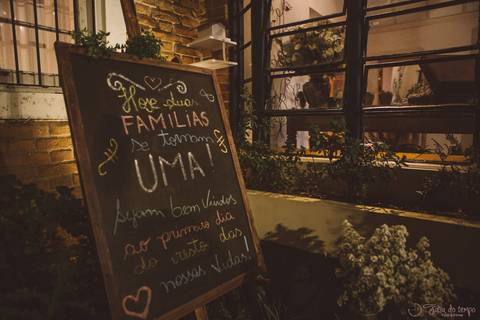 Hoje duas
FAMILIAS
se tornam
UMA!
Sejam bem Vindos
ao primeiro dia
do resto das
nossas Vidas!
do tempo